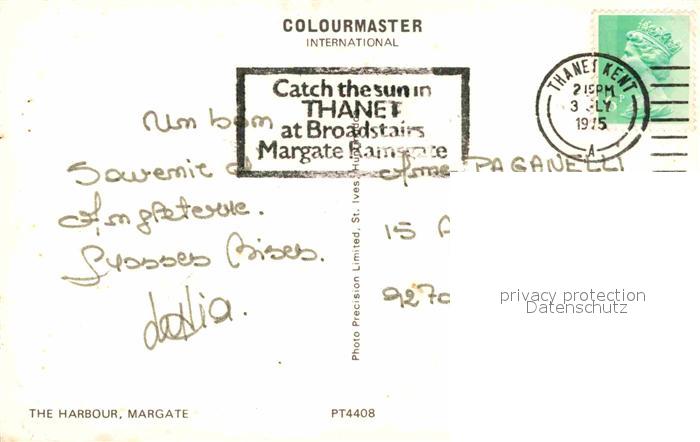 COLOURMASTER
INTERNATIONAL
Catch the sun in
THANET
at Broadstairs
Margate Ramsgate
THANET KENT
2 15PM
3 JLY
1975
A
P
Un bon
Souvenir d'
Angleterre.
Grosses Bises.
PAGANELLI
15
9270
Photo Precision Limited, St. Ives, Hunt
privacy protection
Datenschutz
THE HARBOUR, MARGATE
PT4408